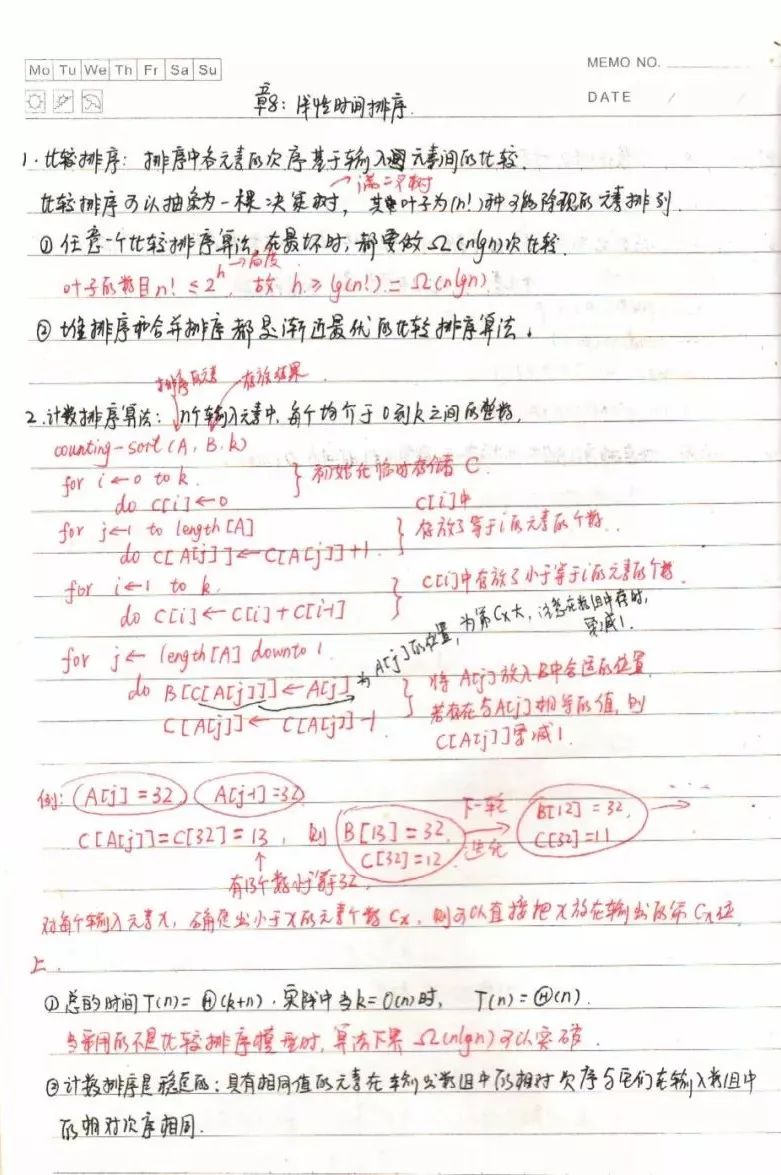 Mo Tu We Th Fr Sa Su
MEMO NO.
DATE / /
章8: 线性时间排序.
1. 比较排序: 排序中各元素的次序基于输入元素间的比较.
→满二叉树
比较排序可以抽象为一棵决策树, 其叶子为(n!)种可能出现的元素排列.
① 任意一个比较排序算法, 在最坏时, 都要做 Ω(nlgn)次比较.
→高度
叶子的数目 n! ≤ 2^h, 故 h ≥ lg(n!) = Ω(nlgn)
② 堆排序和合并排序都是渐近最优的比较排序算法.
排序的元素 存放结果
2. 计数排序算法: n个输入元素中, 每个均介于0到k之间的整数.
counting-sort (A, B, k)
for i ← 0 to k.
do C[i] ← 0
} 初始化临时存储者 C.
for j ← 1 to length[A]
do C[A[j]] ← C[A[j]]+1.
} C[i]中
存放了等于i的元素的个数.
for i ← 1 to k.
do C[i] ← C[i] + C[i-1]
} C[i]中存放了小于等于i的元素的个数.
for j ← length[A] downto 1.
do B[C[A[j]]] ← A[j]
C[A[j]] ← C[A[j]]-1
为A[j]的位置, 为第Cx大, 注意在数组中存时,
要减1.
} 将 A[j] 放入B中合适的位置
若存在与A[j]相等的值, 则
C[A[j]]要减1.
例: A[j] = 32 A[j-1] = 32
C[A[j]] = C[32] = 13, 则 B[13] = 32, C[32] = 12.
下一轮
迭代
B[12] = 32, C[32] = 11
→ ...
↑
有13个数小于等于32.
对每个输入元素x, 确定出小于x的元素个数 Cx, 则可以直接把x放在输出的第 Cx位
上.
① 总的时间 T(n) = Θ(k+n). 实际中当 k = O(n) 时, T(n) = Θ(n).
当采用的不是比较排序模型时, 算法下界 Ω(nlgn) 可以突破.
② 计数排序是稳定的: 具有相同值的元素在输出数组中的相对次序与它们在输入数组中
的相对次序相同.